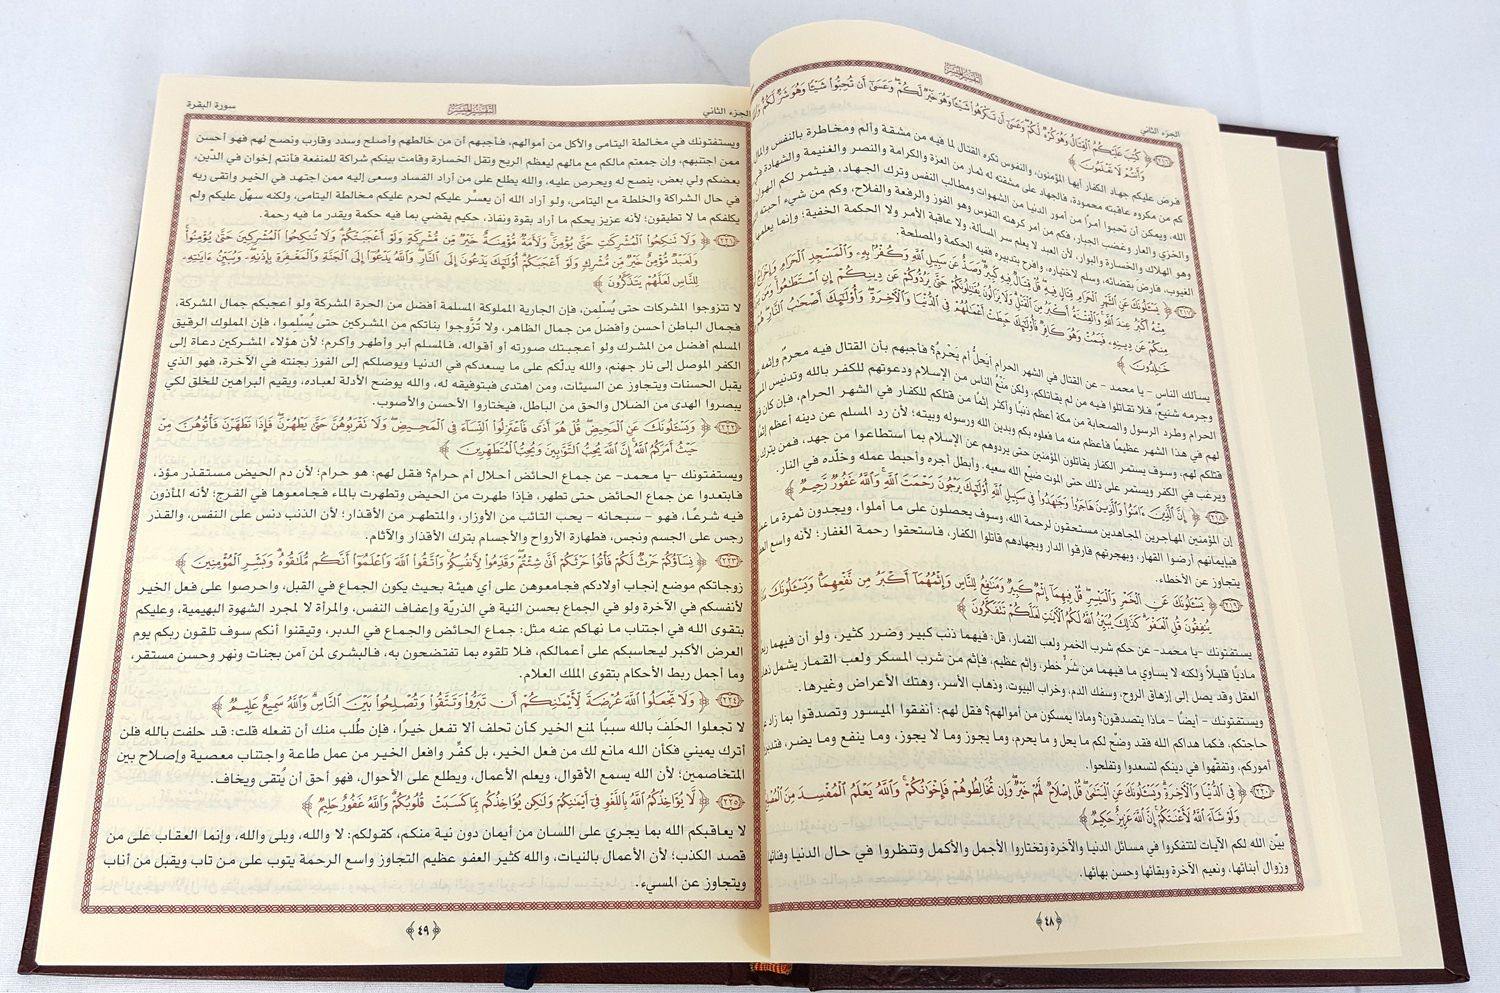 التفسير الميسر
الجزء الثاني
﴿٢١٦﴾ ﴿ كُتِبَ عَلَيْكُمُ ٱلْقِتَالُ وَهُوَ كُرْهٌ لَّكُمْ وَعَسَىٰٓ أَن تَكْرَهُوا۟ شَيْـًٔا وَهُوَ خَيْرٌ لَّكُمْ وَعَسَىٰٓ أَن تُحِبُّوا۟ شَيْـًٔا وَهُوَ شَرٌّ لَّكُمْ
وَأَنتُمْ لَا تَعْلَمُونَ ﴾
فرض عليكم جهاد الكفار أيها المؤمنون، والنفوس تكره القتال لما فيه من مشقة وألم ومخاطرة بالنفس والمال
كم من مكروه عاقبته محمودة، فالجهاد على مشقته له ثمار من العزة والكرامة والنصر والغنيمة والشهادة في
الله، ويمكن أن تحبوا أمرًا من أمور الدنيا من الشهوات ومطالب النفس وترك الجهاد، فيثمر لكم الهوان
والخزي والعار وغضب الجبار، فكم من أمر كرهته النفوس وهو الفوز والرفعة والفلاح، وكم من شيء أحبته
وهو الهلاك والخسارة والبوار، لأن العبد لا يعلم سر المسألة، ولا عاقبة الأمر ولا الحكمة الخفية؛ وإنما يعلمها
الغيوب، فارض بقضائه، وسلم لاختياره، وافرح بتدبيره ففيه الحكمة والمصلحة.
﴿٢١٧﴾ ﴿ يَسْـَٔلُونَكَ عَنِ ٱلشَّهْرِ ٱلْحَرَامِ قِتَالٍ فِيهِ قُلْ قِتَالٌ فِيهِ كَبِيرٌ وَصَدٌّ عَن سَبِيلِ ٱللَّهِ وَكُفْرٌۢ بِهِۦ وَٱلْمَسْجِدِ ٱلْحَرَامِ وَإِخْرَاجُ
مِنْهُ أَكْبَرُ عِندَ ٱللَّهِ وَٱلْفِتْنَةُ أَكْبَرُ مِنَ ٱلْقَتْلِ وَلَا يَزَالُونَ يُقَـٰتِلُونَكُمْ حَتَّىٰ يَرُدُّوكُمْ عَن دِينِكُمْ إِنِ ٱسْتَطَـٰعُوا۟ وَمَن
مِنكُمْ عَن دِينِهِۦ فَيَمُتْ وَهُوَ كَافِرٌ فَأُو۟لَـٰٓئِكَ حَبِطَتْ أَعْمَـٰلُهُمْ فِى ٱلدُّنْيَا وَٱلْـَٔاخِرَةِ وَأُو۟لَـٰٓئِكَ أَصْحَـٰبُ ٱلنَّارِ
خَـٰلِدُونَ ﴾
يسألك الناس - يا محمد - عن القتال في الشهر الحرام أيَحلُّ أم يَحْرمُ؟ فأجبهم بأن القتال فيه محرمٌ وإثمه
وجرمه شنيعٌ، فلا تقاتلوا فيه من لم يقاتلكم، ولكن منْعُ الناس من الإسلام ودعوتهم للكفر بالله وتدنيس
الحرام وطرد الرسول والصحابة من مكة أعظم ذنبًا وأكثر إثمًا من قتلكم للكفار في الشهر الحرام، فإن كان
لهم في هذا الشهر عظيمًا فأعظم منه ما فعلوه بكم وبدين الله ورسوله وبيته؛ لأن رد المسلم عن دينه أعظم
قتلكم لهم، وسوف يستمر الكفار يقاتلون المؤمنين حتى يردوهم عن الإسلام بما استطاعوا من جهد، فمن يترك
ويرغب في الكفر ويستمر على ذلك حتى الموت ضيّع الله سعيه. وأبطل أجره وأحبط عمله وخلّده في النار.
﴿٢١٨﴾ ﴿ إِنَّ ٱلَّذِينَ ءَامَنُوا۟ وَٱلَّذِينَ هَاجَرُوا۟ وَجَـٰهَدُوا۟ فِى سَبِيلِ ٱللَّهِ أُو۟لَـٰٓئِكَ يَرْجُونَ رَحْمَتَ ٱللَّهِ وَٱللَّهُ غَفُورٌ رَّحِيمٌ ﴾
إن المؤمنين المهاجرين المجاهدين مستحقون لرحمة الله، وسوف يحصلون على ما أملوا، ويجدون ثمرة ما
فبإيمانهم أرضوا القهار، وبهجرتهم فارقوا الدار وبجهادهم قاتلوا الكفار، فاستحقوا رحمة الغفار؛ لأنه واسع
يتجاوز عن الأخطاء.
﴿٢١٩﴾ ﴿ يَسْـَٔلُونَكَ عَنِ ٱلْخَمْرِ وَٱلْمَيْسِرِ قُلْ فِيهِمَآ إِثْمٌ كَبِيرٌ وَمَنَـٰفِعُ لِلنَّاسِ وَإِثْمُهُمَآ أَكْبَرُ مِن نَّفْعِهِمَا وَيَسْـَٔلُونَكَ
يُنفِقُونَ قُلِ ٱلْعَفْوَ كَذَٰلِكَ يُبَيِّنُ ٱللَّهُ لَكُمُ ٱلْـَٔايَـٰتِ لَعَلَّكُمْ تَتَفَكَّرُونَ ﴾
يستفتونك -يا محمد- عن حكم شرب الخمر ولعب القمار، قل: فيهما ذنب كبير وضرر كثير، ولو أن فيهما
ماديًا قليلاً ولكنه لا يساوي ما فيهما من شرٍّ خطر، وإثم عظيم، فإثم من شرب المسكر ولعب القمار يشمل
العقل وقد يصل إلى إزهاق الروح، وسفك الدم، وخراب البيوت، وذهاب الأسر، وهتك الأعراض وغيرها.
ويستفتونك - أيضًا - ماذا يتصدقون؟ وماذا يمسكون من أموالهم؟ فقل لهم: أنفقوا الميسور وتصدقوا بما زاد
حاجتكم، فكما هداكم الله فقد وضّح لكم ما يحل و ما يحرم، وما يجوز وما لا يجوز، وما ينفع وما يضر،
أموركم، وتفقّهوا في دينكم لتسعدوا وتفلحوا.
﴿٢٢٠﴾ ﴿ فِى ٱلدُّنْيَا وَٱلْـَٔاخِرَةِ وَيَسْـَٔلُونَكَ عَنِ ٱلْيَتَـٰمَىٰ قُلْ إِصْلَاحٌ لَّهُمْ خَيْرٌ وَإِن تُخَالِطُوهُمْ فَإِخْوَٰنُكُمْ وَٱللَّهُ يَعْلَمُ ٱلْمُفْسِدَ مِنَ
وَلَوْ شَآءَ ٱللَّهُ لَأَعْنَتَكُمْ إِنَّ ٱللَّهَ عَزِيزٌ حَكِيمٌ ﴾
بيّن الله لكم الآيات لتتفكروا في مسائل الدنيا والآخرة وتختاروا الأجمل والأكمل وتنظروا في حال الدنيا وفنائها
وزوال أبنائها، ونعيم الآخرة وبقائها وحسن بهائها.
﴿٤٨﴾
سورة البقرة
التفسير الميسر
الجزء الثاني
ويستفتونك في مخالطة اليتامى والأكل من أموالهم، فأجبهم أن من خالطهم وأصلح وسدد وقارب ونصح لهم فهو أحسن
ممن اجتنبهم، وإن جمعتم مالكم مع مالهم ليعظم الربح وتقل الخسارة وقامت بينكم شراكة للمنفعة فأنتم إخوان في الدّين،
بعضكم ولي بعض، ينصح له ويحرص عليه، والله يطلع على من أراد الفساد وسعى إليه ممن اجتهد في الخير واتقى ربه
في حال الشراكة والخلطة مع اليتامى، ولو أراد الله أن يعسُّر عليكم لحرم عليكم مخالطة اليتامى، ولكنه سهّل عليكم ولم
يكلفكم ما لا تطيقون؛ لأنه عزيز يحكم ما أراد بقوة ونفاذ، حكيم يقضي بما فيه حكمة ويقدر ما فيه رحمة.
﴿٢٢١﴾ ﴿ وَلَا تَنكِحُوا۟ ٱلْمُشْرِكَـٰتِ حَتَّىٰ يُؤْمِنَّ وَلَأَمَةٌ مُّؤْمِنَةٌ خَيْرٌ مِّن مُّشْرِكَةٍ وَلَوْ أَعْجَبَتْكُمْ وَلَا تُنكِحُوا۟ ٱلْمُشْرِكِينَ حَتَّىٰ يُؤْمِنُوا۟
وَلَعَبْدٌ مُّؤْمِنٌ خَيْرٌ مِّن مُّشْرِكٍ وَلَوْ أَعْجَبَكُمْ أُو۟لَـٰٓئِكَ يَدْعُونَ إِلَى ٱلنَّارِ وَٱللَّهُ يَدْعُوٓا۟ إِلَى ٱلْجَنَّةِ وَٱلْمَغْفِرَةِ بِإِذْنِهِۦ وَيُبَيِّنُ ءَايَـٰتِهِۦ
لِلنَّاسِ لَعَلَّهُمْ يَتَذَكَّرُونَ ﴾
لا تتزوجوا المشركات حتى يُسلمن، فإن الجارية المملوكة المسلمة أفضل من الحرة المشركة ولو أعجبكم جمال المشركة،
فجمال الباطن أحسن وأفضل من جمال الظاهر، ولا تَزوَّجوا بناتكم من المشركين حتى يُسلموا، فإن المملوك الرقيق
المسلم أفضل من المشرك ولو أعجبتك صورته أو أقواله، فالمسلم أبر وأطهر وأكرم؛ لأن هؤلاء المشركين دعاة إلى
الكفر الموصل إلى نار جهنم، والله يدلّكم على ما يسعدكم في الدنيا ويوصلكم إلى الفوز بجنته في الآخرة، فهو الذي
يقبل الحسنات ويتجاوز عن السيئات، ومن اهتدى فبتوفيقه له، والله يوضح الأدلة لعباده، ويقيم البراهين للخلق لكي
يبصروا الهدى من الضلال والحق من الباطل، فيختاروا الأحسن والأصوب.
﴿٢٢٢﴾ ﴿ وَيَسْـَٔلُونَكَ عَنِ ٱلْمَحِيضِ قُلْ هُوَ أَذًى فَٱعْتَزِلُوا۟ ٱلنِّسَآءَ فِى ٱلْمَحِيضِ وَلَا تَقْرَبُوهُنَّ حَتَّىٰ يَطْهُرْنَ فَإِذَا تَطَهَّرْنَ فَأْتُوهُنَّ مِنْ
حَيْثُ أَمَرَكُمُ ٱللَّهُ إِنَّ ٱللَّهَ يُحِبُّ ٱلتَّوَّٰبِينَ وَيُحِبُّ ٱلْمُتَطَهِّرِينَ ﴾
ويستفتونك -يا محمد- عن جماع الحائض أحلال أم حرام؟ فقل لهم: هو حرام؛ لأن دم الحيض مستقذر مؤذ،
فابتعدوا عن جماع الحائض حتى تطهر، فإذا طهرت من الحيض وتطهرت بالماء فجامعوها في الفرج؛ لأنه المأذون
فيه شرعًا، فهو - سبحانه - يحب التائب من الأوزار، والمتطهر من الأقذار؛ لأن الذنب دنس على النفس، والقذر
رجس على الجسم ونجس، فطهارة الأرواح والأجسام بترك الأقذار والآثام.
﴿٢٢٣﴾ ﴿ نِسَآؤُكُمْ حَرْثٌ لَّكُمْ فَأْتُوا۟ حَرْثَكُمْ أَنَّىٰ شِئْتُمْ وَقَدِّمُوا۟ لِأَنفُسِكُمْ وَٱتَّقُوا۟ ٱللَّهَ وَٱعْلَمُوٓا۟ أَنَّكُم مُّلَـٰقُوهُ وَبَشِّرِ ٱلْمُؤْمِنِينَ ﴾
زوجاتكم موضع إنجاب أولادكم فجامعوهن على أي هيئة بحيث يكون الجماع في القبل، واحرصوا على فعل الخير
لأنفسكم في الآخرة ولو في الجماع بحسن النية في الذريّة وإعفاف النفس، والمرأة لا لمجرد الشهوة البهيمية، وعليكم
بتقوى الله في اجتناب ما نهاكم عنه مثل: جماع الحائض والجماع في الدبر، وتيقنوا أنكم سوف تلقون ربكم يوم
العرض الأكبر ليحاسبكم على أعمالكم، فلا تلقوه بما تفتضحون به، فالبشرى لمن آمن بجنات ونهر وحسن مستقر،
وما أجمل ربط الأحكام بتقوى الملك العلام.
﴿٢٢٤﴾ ﴿ وَلَا تَجْعَلُوا۟ ٱللَّهَ عُرْضَةً لِّأَيْمَـٰنِكُمْ أَن تَبَرُّوا۟ وَتَتَّقُوا۟ وَتُصْلِحُوا۟ بَيْنَ ٱلنَّاسِ وَٱللَّهُ سَمِيعٌ عَلِيمٌ ﴾
لا تجعلوا الحَلفَ بالله سببًا لمنع الخير كأن تحلف ألا تفعل خيرًا، فإن طُلب منك أن تفعله قلت: قد حلفت بالله فلن
أترك يميني فكأن الله مانع لك من فعل الخير، بل كفِّر وافعل الخير من عمل طاعة واجتناب معصية وإصلاح بين
المتخاصمين؛ لأن الله يسمع الأقوال، ويعلم الأعمال، ويطلع على الأحوال، فهو أحق أن يُتقى ويخاف.
﴿٢٢٥﴾ ﴿ لَّا يُؤَاخِذُكُمُ ٱللَّهُ بِٱللَّغْوِ فِىٓ أَيْمَـٰنِكُمْ وَلَـٰكِن يُؤَاخِذُكُم بِمَا كَسَبَتْ قُلُوبُكُمْ وَٱللَّهُ غَفُورٌ حَلِيمٌ ﴾
لا يعاقبكم الله بما يجري على اللسان من أيمان دون نية منكم، كقولكم: لا والله، وبلى والله، وإنما العقاب على من
قصد الكذب؛ لأن الأعمال بالنيات، والله كثير العفو عظيم التجاوز واسع الرحمة يتوب على من تاب ويقبل من أناب
ويتجاوز عن المسيء.
﴿٤٩﴾